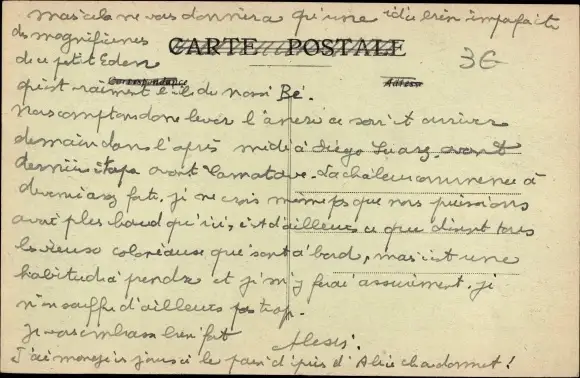 mais cela ne vous donnera qu'une idée bien imparfaite
des magnificences
CARTE POSTALE
3G
de ce petit Eden
Correspondance
Adresse
qu'est vraiment l'île de Nossi Bé.
Nous comptons donc lever l'ancre ce soir et arriver
demain dans l'après midi à Diego Suarez, avant
dernière étape avant Tamatave. La chaleur commence à
devenir assez forte. je ne crois même pas que nous puissions
avoir plus chaud qu'ici, c'est d'ailleurs ce que disent tous
les vieux coloniaux qui sont à bord, mais c'est une
habitude à prendre et je m'y ferai assurément. je
n'en souffre d'ailleurs pas trop.
je vous embrasse bien fort
Alexis.
J'ai mangé ces jours ci le pain d'épices d'Alice chardonnet!